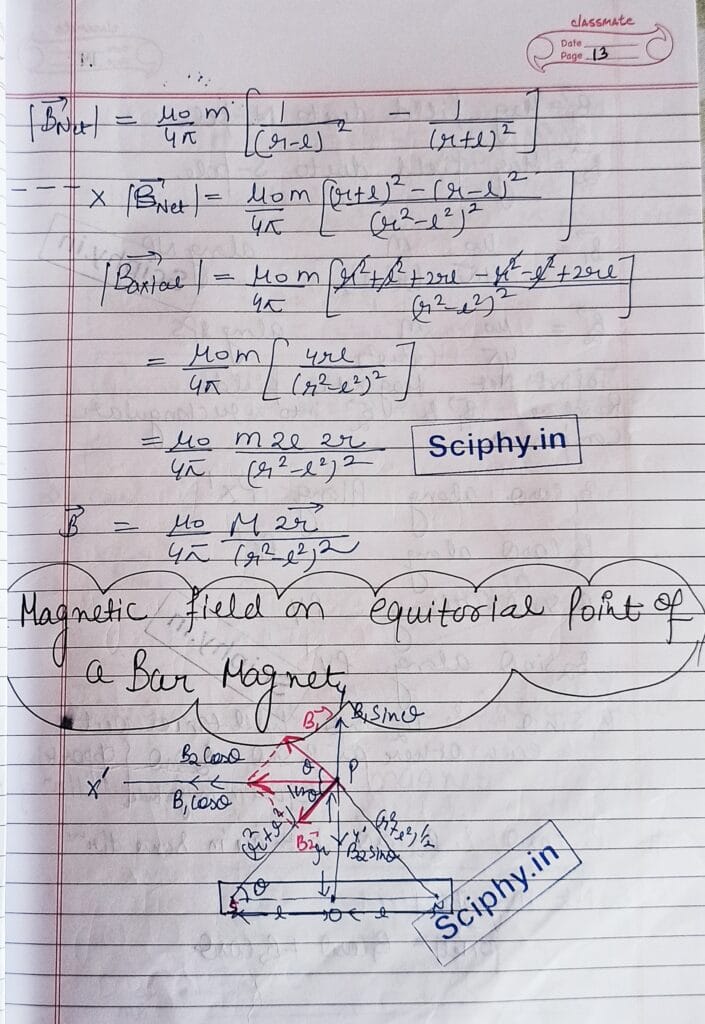 classmate
Date
Page 13
|B⃗Net| = μ₀/4π m [1/(r-l)² - 1/(r+l)²]
--- x |B⃗Net| = μ₀m/4π [(r+l)² - (r-l)²/(r²-l²)²]
|B⃗axial| = μ₀m/4π [r²+l²+2rl - r²-l²+2rl/(r²-l²)²]
= μ₀m/4π [4rl/(r²-l²)²]
= μ₀/4π m 2l 2r/(r²-l²)²
Sciphy.in
B⃗ = μ₀/4π M 2r⃗/(r²-l²)²
Magnetic field on equitorial Point of
a Bar Magnet
y
B₁⃗ B₁sinθ
B₂cosθ
X' B₁cosθ θ θ P
(r²+l²)½ B₂⃗ r y' B₂sinθ (r²+l²)½
θ
S l O l N
Sciphy.in